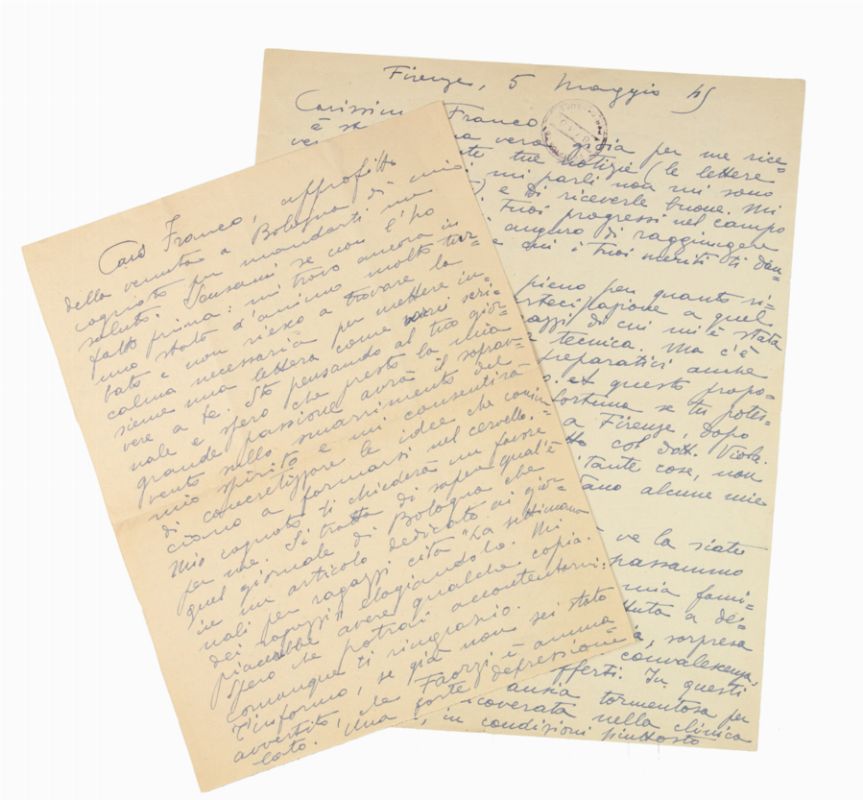 Caro Franco, approfitto
della venuta a Bologna di mio
cognato per mandarti un
saluto. Scusami se non l'ho
fatto prima: mi trovo ancora in
uno stato d'animo molto tur=
bato e non riesco a trovare la
calma necessaria per mettere in=
sieme una lettera come vorrei scri=
vere a te. Sto pensando al tuo gior=
nale e spero che presto la mia
grande passione avrà il soprav=
vento sullo smarrimento del
mio spirito e mi consentirà
di concretizzare le idee che comin
ciano a formarsi nel cervello.
Mio cognato ti chiederà un favore
per me. Si tratta di saper qual'è
quel giornale di Bologna che
in un articolo dedicato ai gior=
nali per ragazzi cita "La settimana
dei ragazzi" elogiandolo. Mi
piacerebbe avere qualche copia.
Spero che potrai accontentarmi:
comunque ti ringrazio.
T'informo, se già non sei stato
avvertito, che Faorzi è amma
lato. Una forte depressione
Firenze, 5 Maggio 45
Carissim Franco
è st a vera gioia per me rice=
ve te tue notizie (le lettere
i mi parli non mi sono
) e di riceverle buone. Mi
i tuoi progressi nel campo
auguro di raggiungere
e cui i tuoi meriti ti dàn=
pieno per quanto ri=
artecipazione a quel
gazzi di cui mi è stata
tecnica. Ma c'è
preparativi anche
o. et questo propo=
fortuna se tu potes=
a Firenze, dopo
tto col dott. Viola.
tante cose, non
tano alcune mie
ve la siate
passammo
mia fami=
uta a de=
a, sorpresa
convalescenza,
offerti. In questi
ansia tormentosa per
icoverata nella clinica
, in condizioni piuttosto